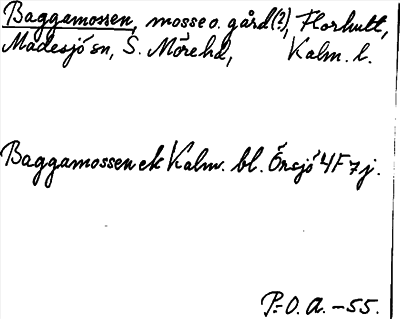 Baggamossen, mosse o. gård(?), Florhult,
Madesjö sn, S. Möre hd, Kalm. l.
Baggamossen ek Kalm. bl. Örsjö 4F 7j.
P.-O. A. -55.